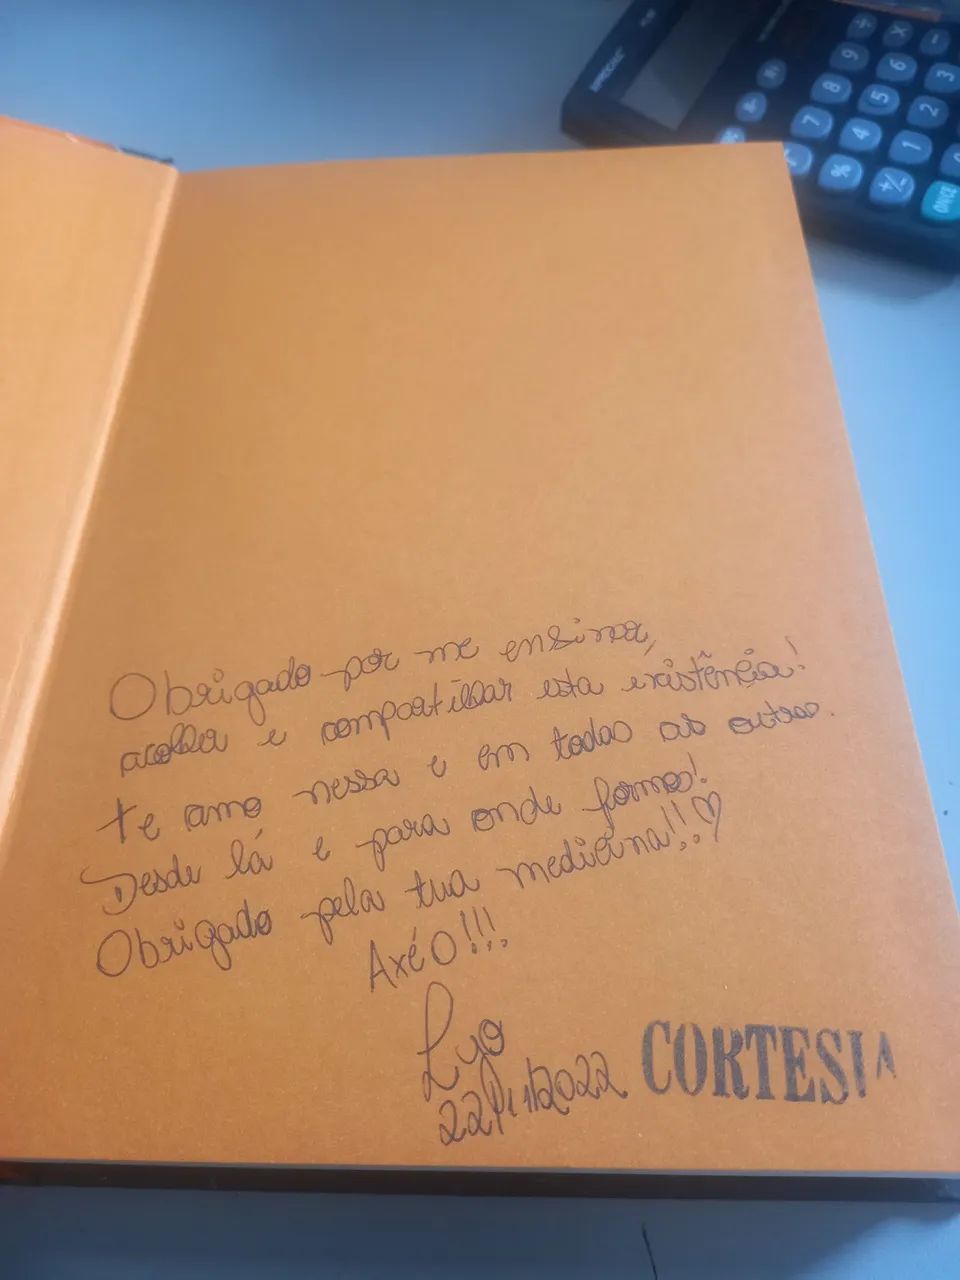 Obrigado por me ensinar,
acolher e compartilhar esta existência!
te amo nessa e em todas as outras.
Desde lá e para onde formos!
Obrigado pela tua medicina!!! ♡
AxéO!!!
Lyo
22/11/2022
CORTESIA
÷ × −
9 6 3
8 5 2
7 4 1
% +/- ON/C